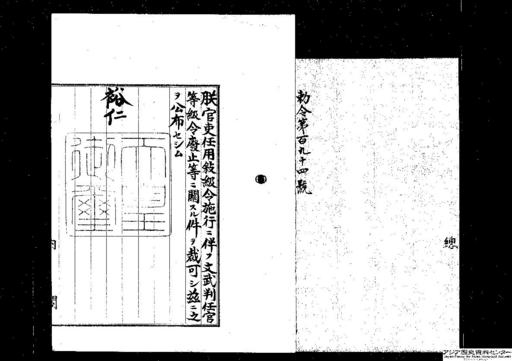 勅令第百九十四號
朕官吏任用敍級令施行ニ伴フ文武判任官
等級令廢止等ニ關スル件ヲ裁可シ玆ニ之
ヲ公布セシム
裕仁
天皇御璽
總
内閣
アジア歴史資料センター